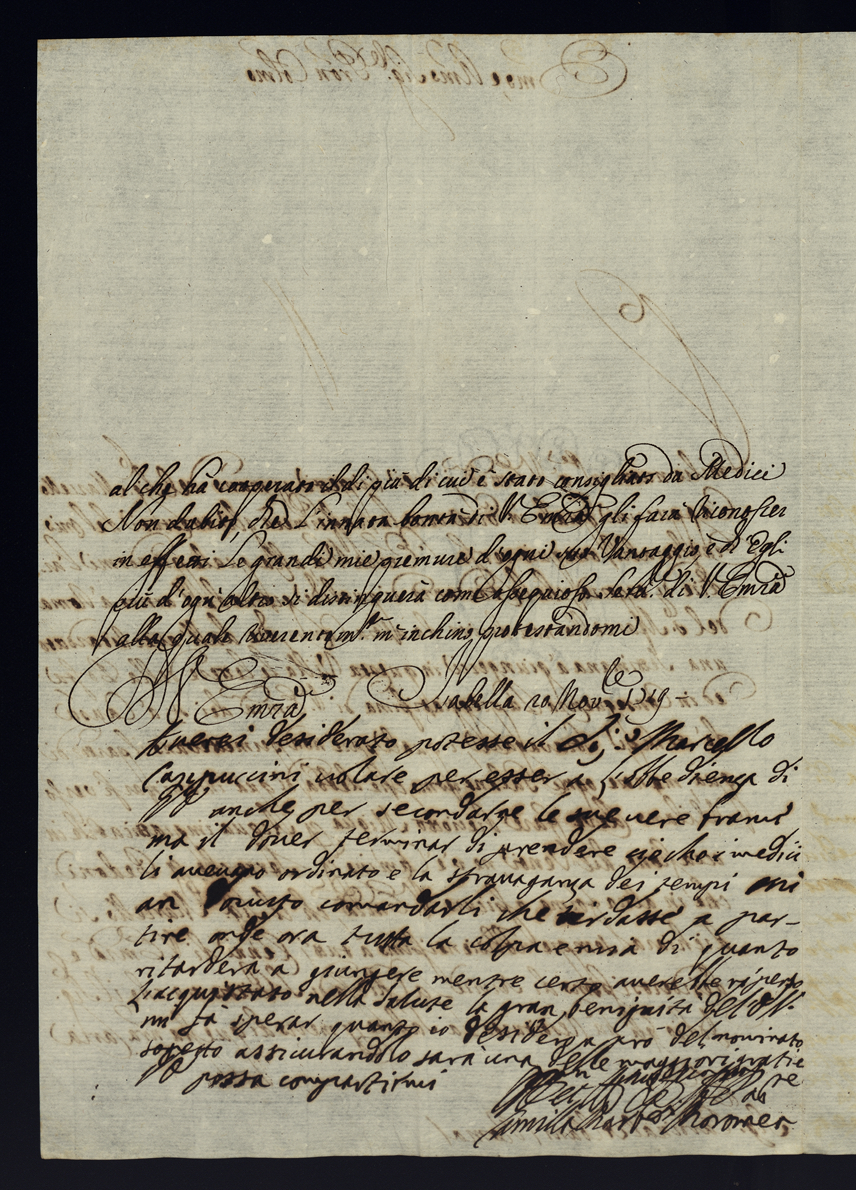 al che ha cooperato il di più di cui è stato consigliato da Medici
Non dubito, che l'innata bontà di V. Emza gli farà riconoscer
in effetti le grandi mie premure d'ogni suo Vantaggio, e d'Egli
più d'ogni altro si distinguerà come ossequioso Serv.e di V. Emza
alla quale riverentem.te m'inchino protestandomi
V. Emza Isabella 20 Nov.le 1719
Averei desiderato potesse il Sig.r Marcello
Cappuccini volare per esser a l'obbedienza di
V. anche per secondarne le sue vere brami
ma il dover terminar di prendere ciò che i medici
li avevano ordinato e la stravaganza dei tempi mi
an comandarli che tardasse a par-
tire onde ora tutta la colpa e mia di quanto
ritarderà a giungere mentre certo averebbe
l'acquistato nella salute la gran benignità dell' V.
mi fa sperar quanto io desidero a prò del nominato
sogetto assicurandolo sarà una delle maggiori gratie
V. possa compartirmi
Camilla Barb. Borromea